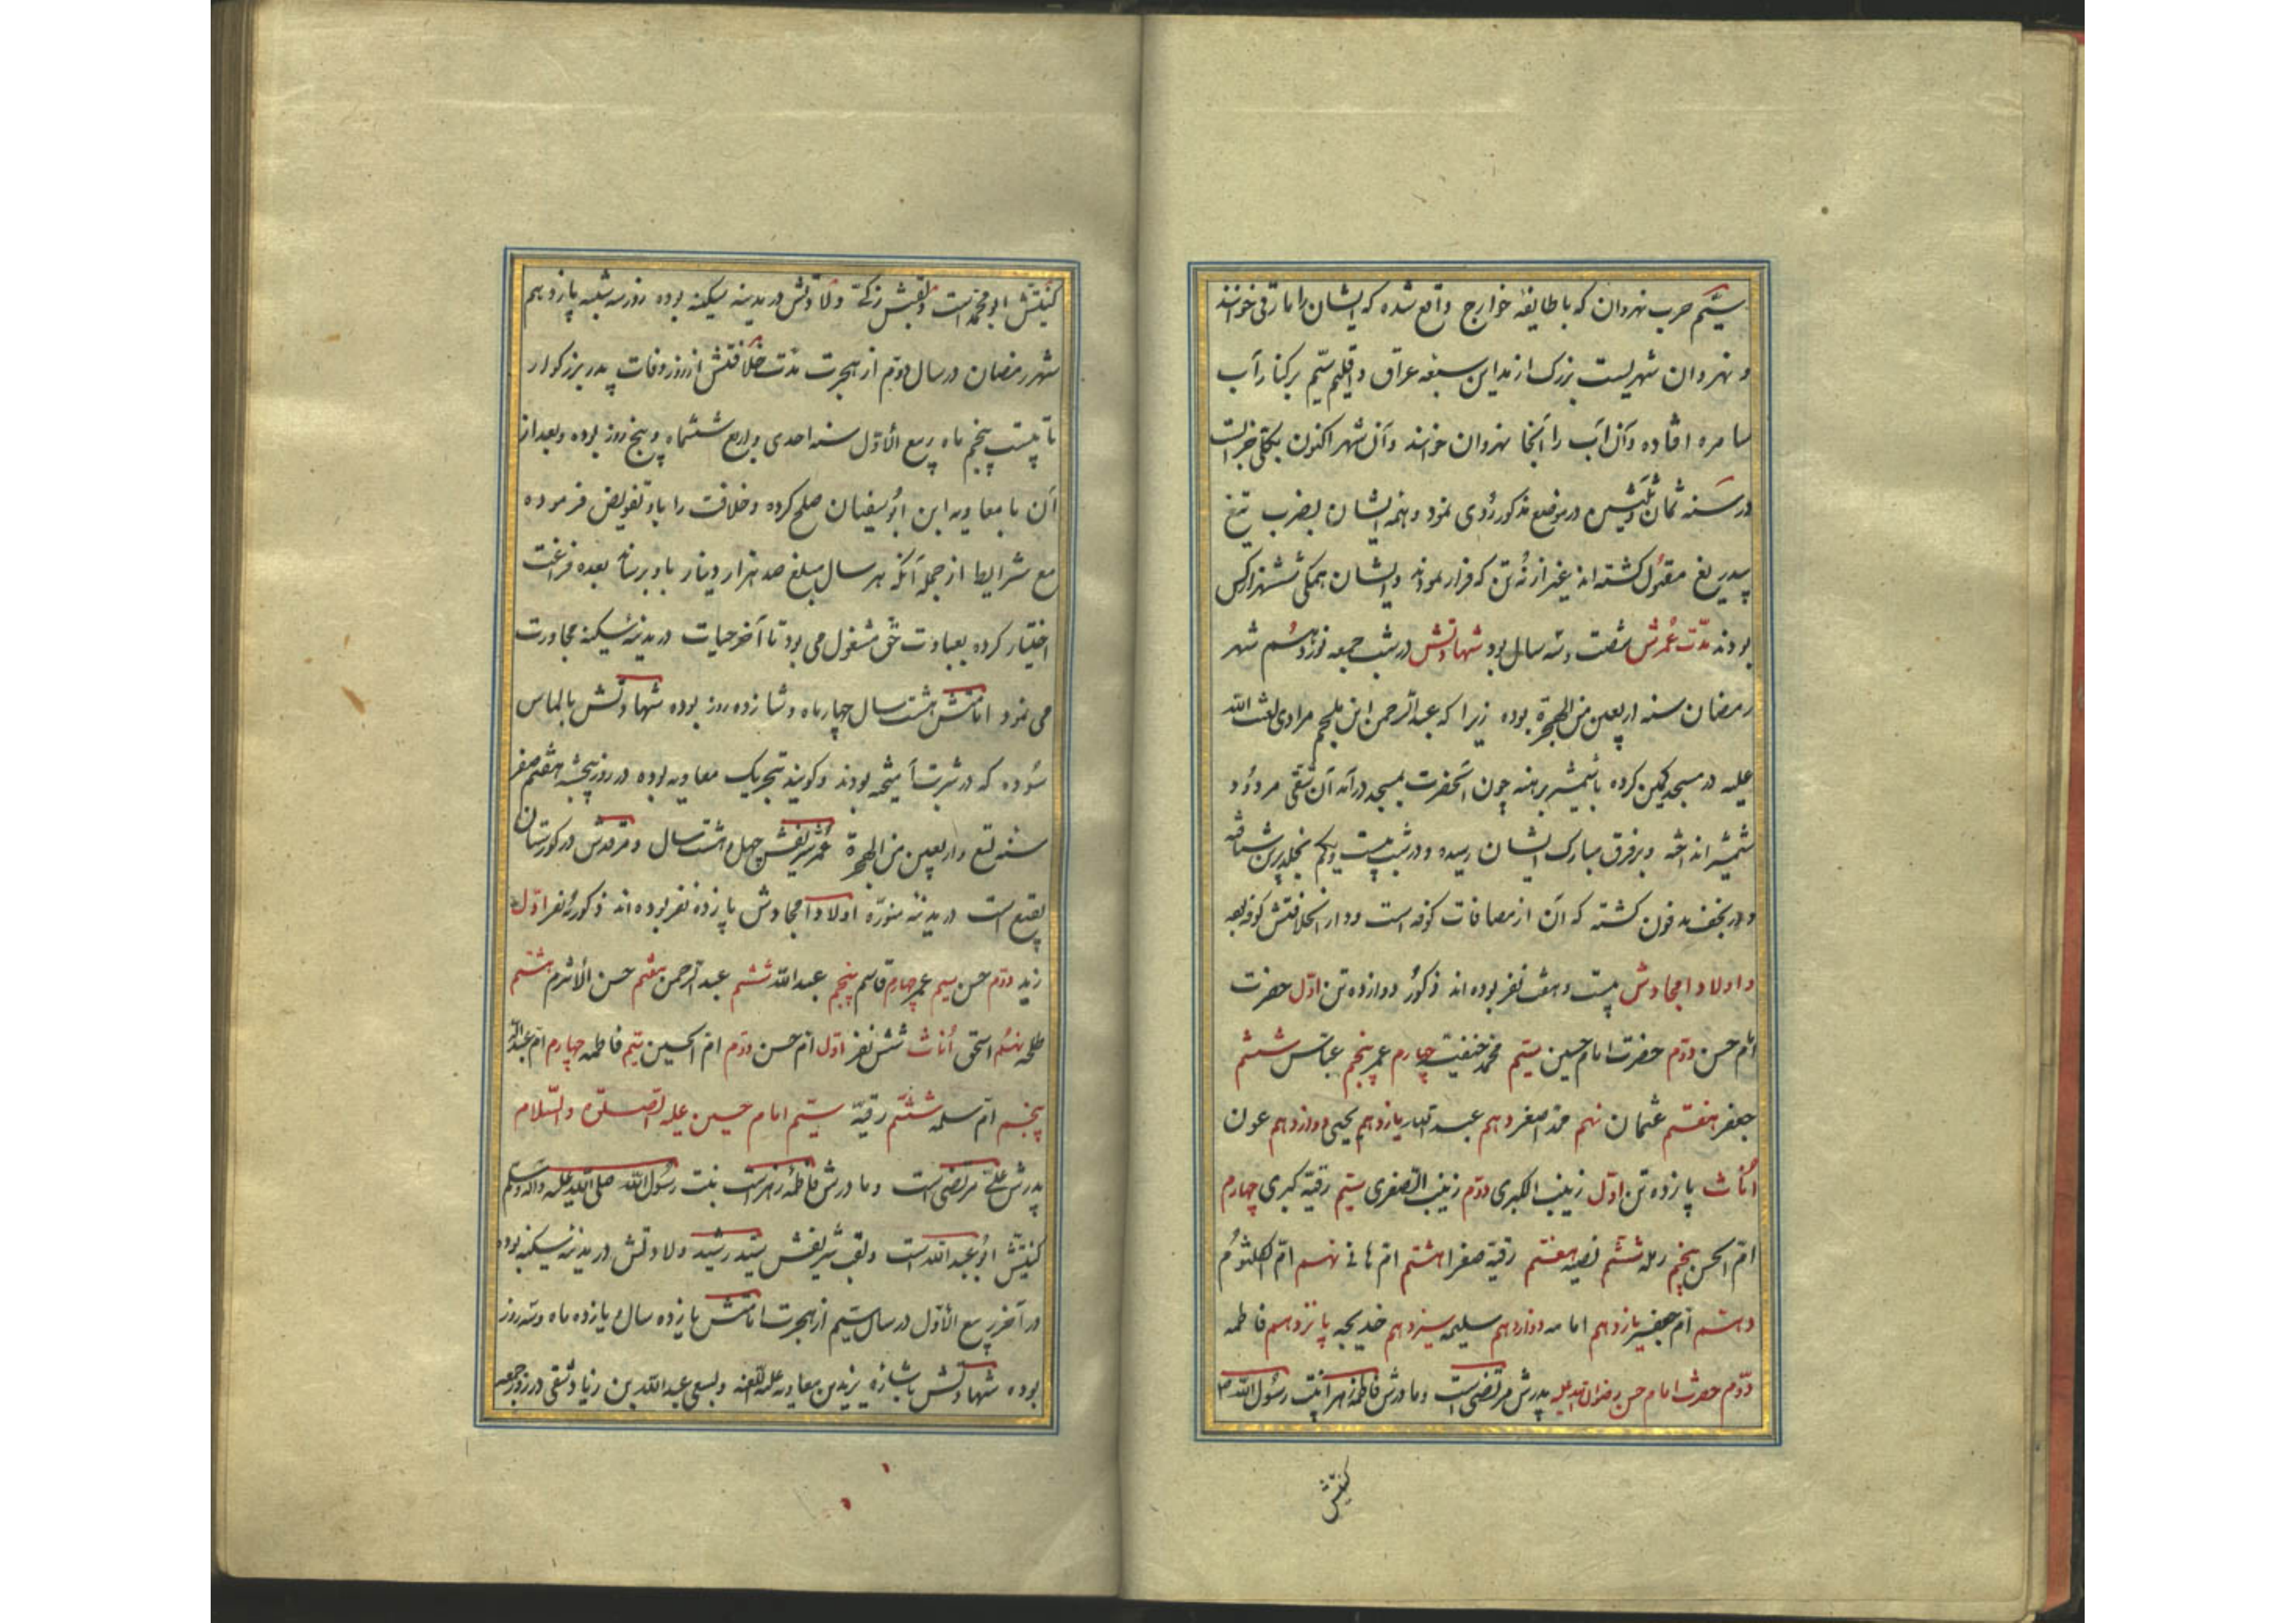 سیّم حرب نهروان که با طایفهٔ خوارج واقع شده که ایشان را مارقی خوانند
و نهروان شهریست بزرک از مداین سبعه عراق و اقلیم سیّم برکنار آب
سامره افتاده وآن آب را آنجا نهروان خوانند وآن شهر اکنون بکلی خرابست
در سنه ثمان وثلثین در موضع مذکور رُوی نمود وهمه ایشان بضرب تیغ
بیدریغ مقتول کشته اند غیر از نُه تن که فرار نمودند وایشان همکی ششهزار کس
بودند مدّت عُمرش شصت وسه سال بود شهادتش در شب جمعه نوزدهُم شهر
رمضان سنه اربعین من الهجرة بوده زیرا که عبدالرحمن ابن ملجم مرادی لعنت الله
علیه در مسجد کمین کرده با شمشیر برهنه چون آنحضرت بمسجد درآمد آن شقی مردُود
شمشیر انداخته وبرفرق مبارک ایشان رسیده ودر شب بیست ویکم بخلد برین شتافته
ودر نجف مدفون کشته که آن از مضافات کوفه است ودار الخلافتش کوفه بود
واولاد امجادش بیست وهفت نفر بوده اند ذکور دوازده تن اوّل حضرت
امام حسن دوّم حضرت امام حسین سیّم محمّد حنفیت چهارم عمر پنجم عبّاس ششم
جعفر هفتم عثمان نهم محمد اصغر دهم عبد القهار یازدهم یحیی دوازدهم عون
اُناث پانزده تن اوّل زینب الکبری دوّم زینب الصغری سیّم رقیّه کبری چهارم
امّ الحسن پنجم رمله ششم نصیبه هفتم رقیّه صغرا هشتم امّ هانی نهم امّ الکلثوُم
دهم امّ جعفر یازدهم امامه دوازدهم سلیمه سیزدهم خدیجه پانزدهم فاطمه
دوّم حضرت امام حسن رضوان الله علیه پدرش مرتضی است ومادرش فاطمه زهرا بنت رسُول الله
کنیتش
کنیتش ابو محمّد است ولقبش زکیّ ولادتش در مدینه سکینه بوده روز سه شنبه پانزدهم
شهر رمضان در سال دوّم از هجرت مدّت خلافتش از روز وفات پدر بزرکوار
تا بیست پنجم ماه ربیع الاوّل سنه احدی واربع ششماه وپنج روز بوده وبعد از
آن با معاویه ابن ابوُ سفیان صلح کرده وخلافت را باو تفویض فرموده
مع شرایط از جمله آنکه هر سال مبلغ صد هزار دینار باو برساند بعده فراغت
اختیار کرده بعبادت حق مشغول می بود تا آخر حیات در مدینهٔ سکینه مجاورت
می نمود امامتش هشت سال چهار ماه وشانزده روز بوده شهادتش بالماس
سوُده که در شربت آمیخته بودند وکویند بتحریک معاویه بوده در روز پنجشنبه هفتم صفر
سنه تسع واربعین من الهجرة عمر شریفش چهل وهشت سال ومرقدش در کورستان
بقیع است در مدینه منوّره اولاد امجادش پانزده نفر بوده اند ذکور نُه نفر اوّل
زید دوّم حسن سیم عمر چهارم قاسم پنجم عبدالله ششم عبدالرحمن هفتم حسن الاثرم هشتم
طلحه نهُم اسحق اُناث شش نفر اوّل امّ حسن دوّم امّ الحسین سیّم فاطمه چهارم امّ عبدالله
پنجم امّ سلمه ششم رقیّه سیّم امام حسین علیه الصلوة والسّلام
پدرش علی مرتضی است ومادرش فاطمهٔ زهراست بنت رسُول الله صلی الله علیه واله وسلم
کنیتش ابُو عبدالله است ولقب شریفش سیّد رشید ولادتش در مدینه سکینه بوده
در آخر ربیع الاوّل در سال سیّم از هجرت امامتش یازده سال و یازده ماه وسه روز
بوده شهادتش باشارهٔ یزید بن معاویه علیه اللعنه وبسعی عبدالله بن زیاد شقی در روز جمعه